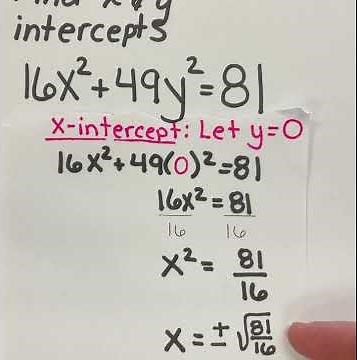 x & y
intercepts
16x²+49y²=81
x-intercept: Let y=0
16x²+49(0)²=81
16x²=81
16 16
x²= 81/16
x=±√81/16